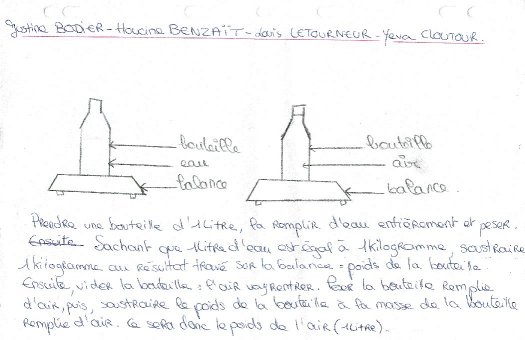 Justine BODIER - Houcine BENZAÏT - Loris LETOURNEUR - Yena CLOUTOUR.
bouteille
eau
balance
bouteille
air
balance.
Prendre une bouteille d'1 Litre, la remplir d'eau entièrement et peser.
Ensuite Sachant que 1 litre d'eau est égal à 1 kilogramme, soustraire
1 kilogramme au résultat trouvé sur la balance = poids de la bouteille.
Ensuite, vider la bouteille : l'air va y rentrer. Peser la bouteille remplie
d'air, puis, soustraire le poids de la bouteille à la masse de la bouteille
remplie d'air. Ce sera donc le poids de l'air (1 litre).